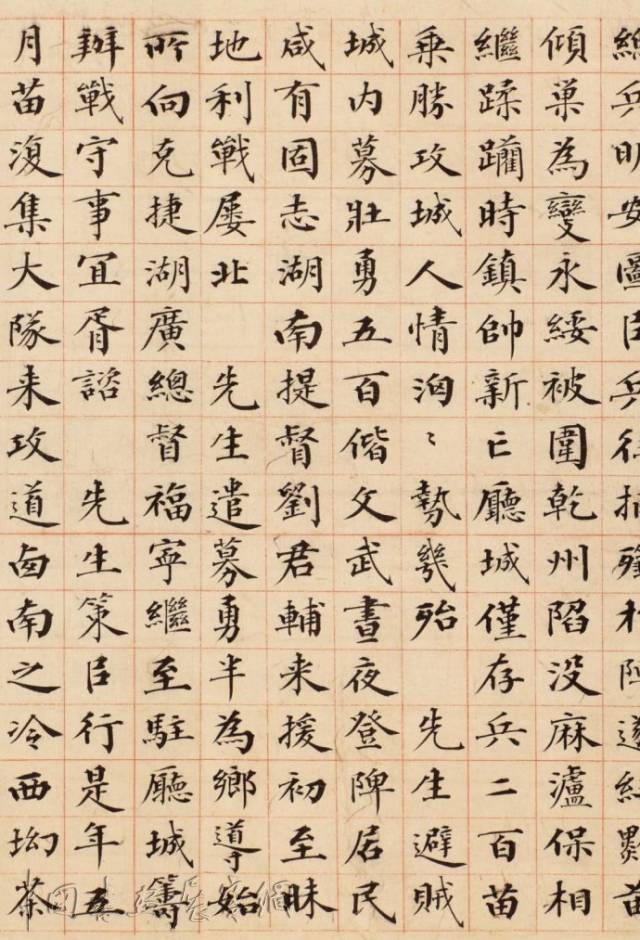 總兵明安圖
傾巢為變永綏被圍乾州陷没麻瀘保相
繼蹂躪時鎮帥新亡廳城僅存兵二百苗
乗勝攻城人情洶〻勢幾殆 先生避賊
城内募壯勇五百偕文武晝夜登陴居民
咸有固志湖南提督劉君輔来援初至昧
地利戰屡北 先生遣募勇半為鄉導始
所向克捷湖廣總督福寧繼至駐廳城籌
辦戰守事宜胥諮 先生策臣行是年五
月苗復集大隊来攻道南之冷西坳茶